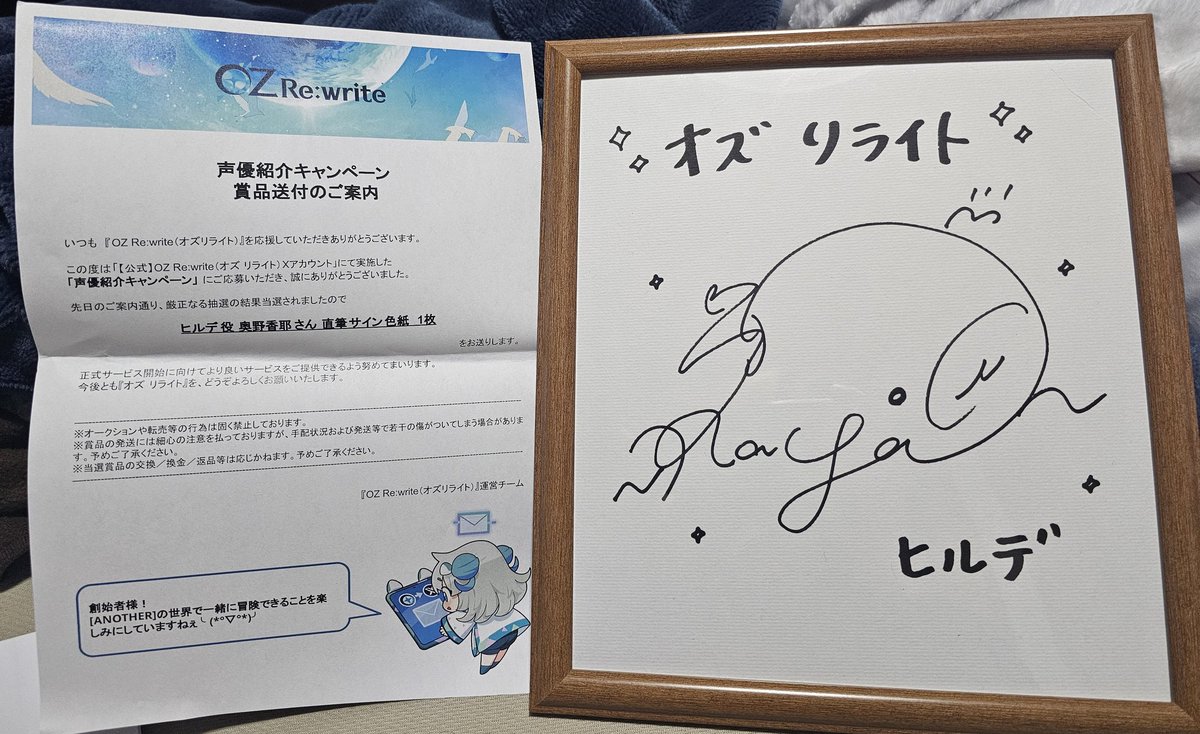 OZ Re:write
声優紹介キャンペーン
賞品送付のご案内
いつも『OZ Re:write(オズリライト)』を応援していただきありがとうございます。
この度は「【公式】OZ Re:write(オズ リライト)Xアカウント」にて実施した
「声優紹介キャンペーン」にご応募いただき、誠にありがとうございました。
先日のご案内通り、厳正なる抽選の結果当選されましたので
ヒルデ役 奥野香耶さん 直筆サイン色紙 1枚
をお送りします。
正式サービス開始に向けてより良いサービスをご提供できるよう努めてまいります。
今後とも『オズ リライト』を、どうぞよろしくお願いいたします。
※オークションや転売等の行為は固く禁止しております。
※賞品の発送には細心の注意を払っておりますが、手配状況および発送等で若干の傷がついてしまう場合がありま
す。予めご了承ください。
※当選賞品の交換／換金／返品等は応じかねます。予めご了承ください。
『OZ Re:write(オズリライト)』運営チーム
創始者様！
[ANOTHER]の世界で一緒に冒険できることを楽
しみにしていますねぇ╰(*°▽°*)╯
オズ リライト
Kaya
ヒルデ